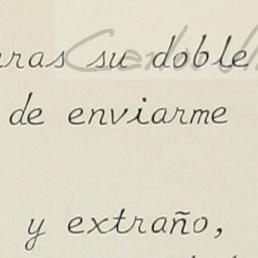 su doble
de enviarme
y extraño,